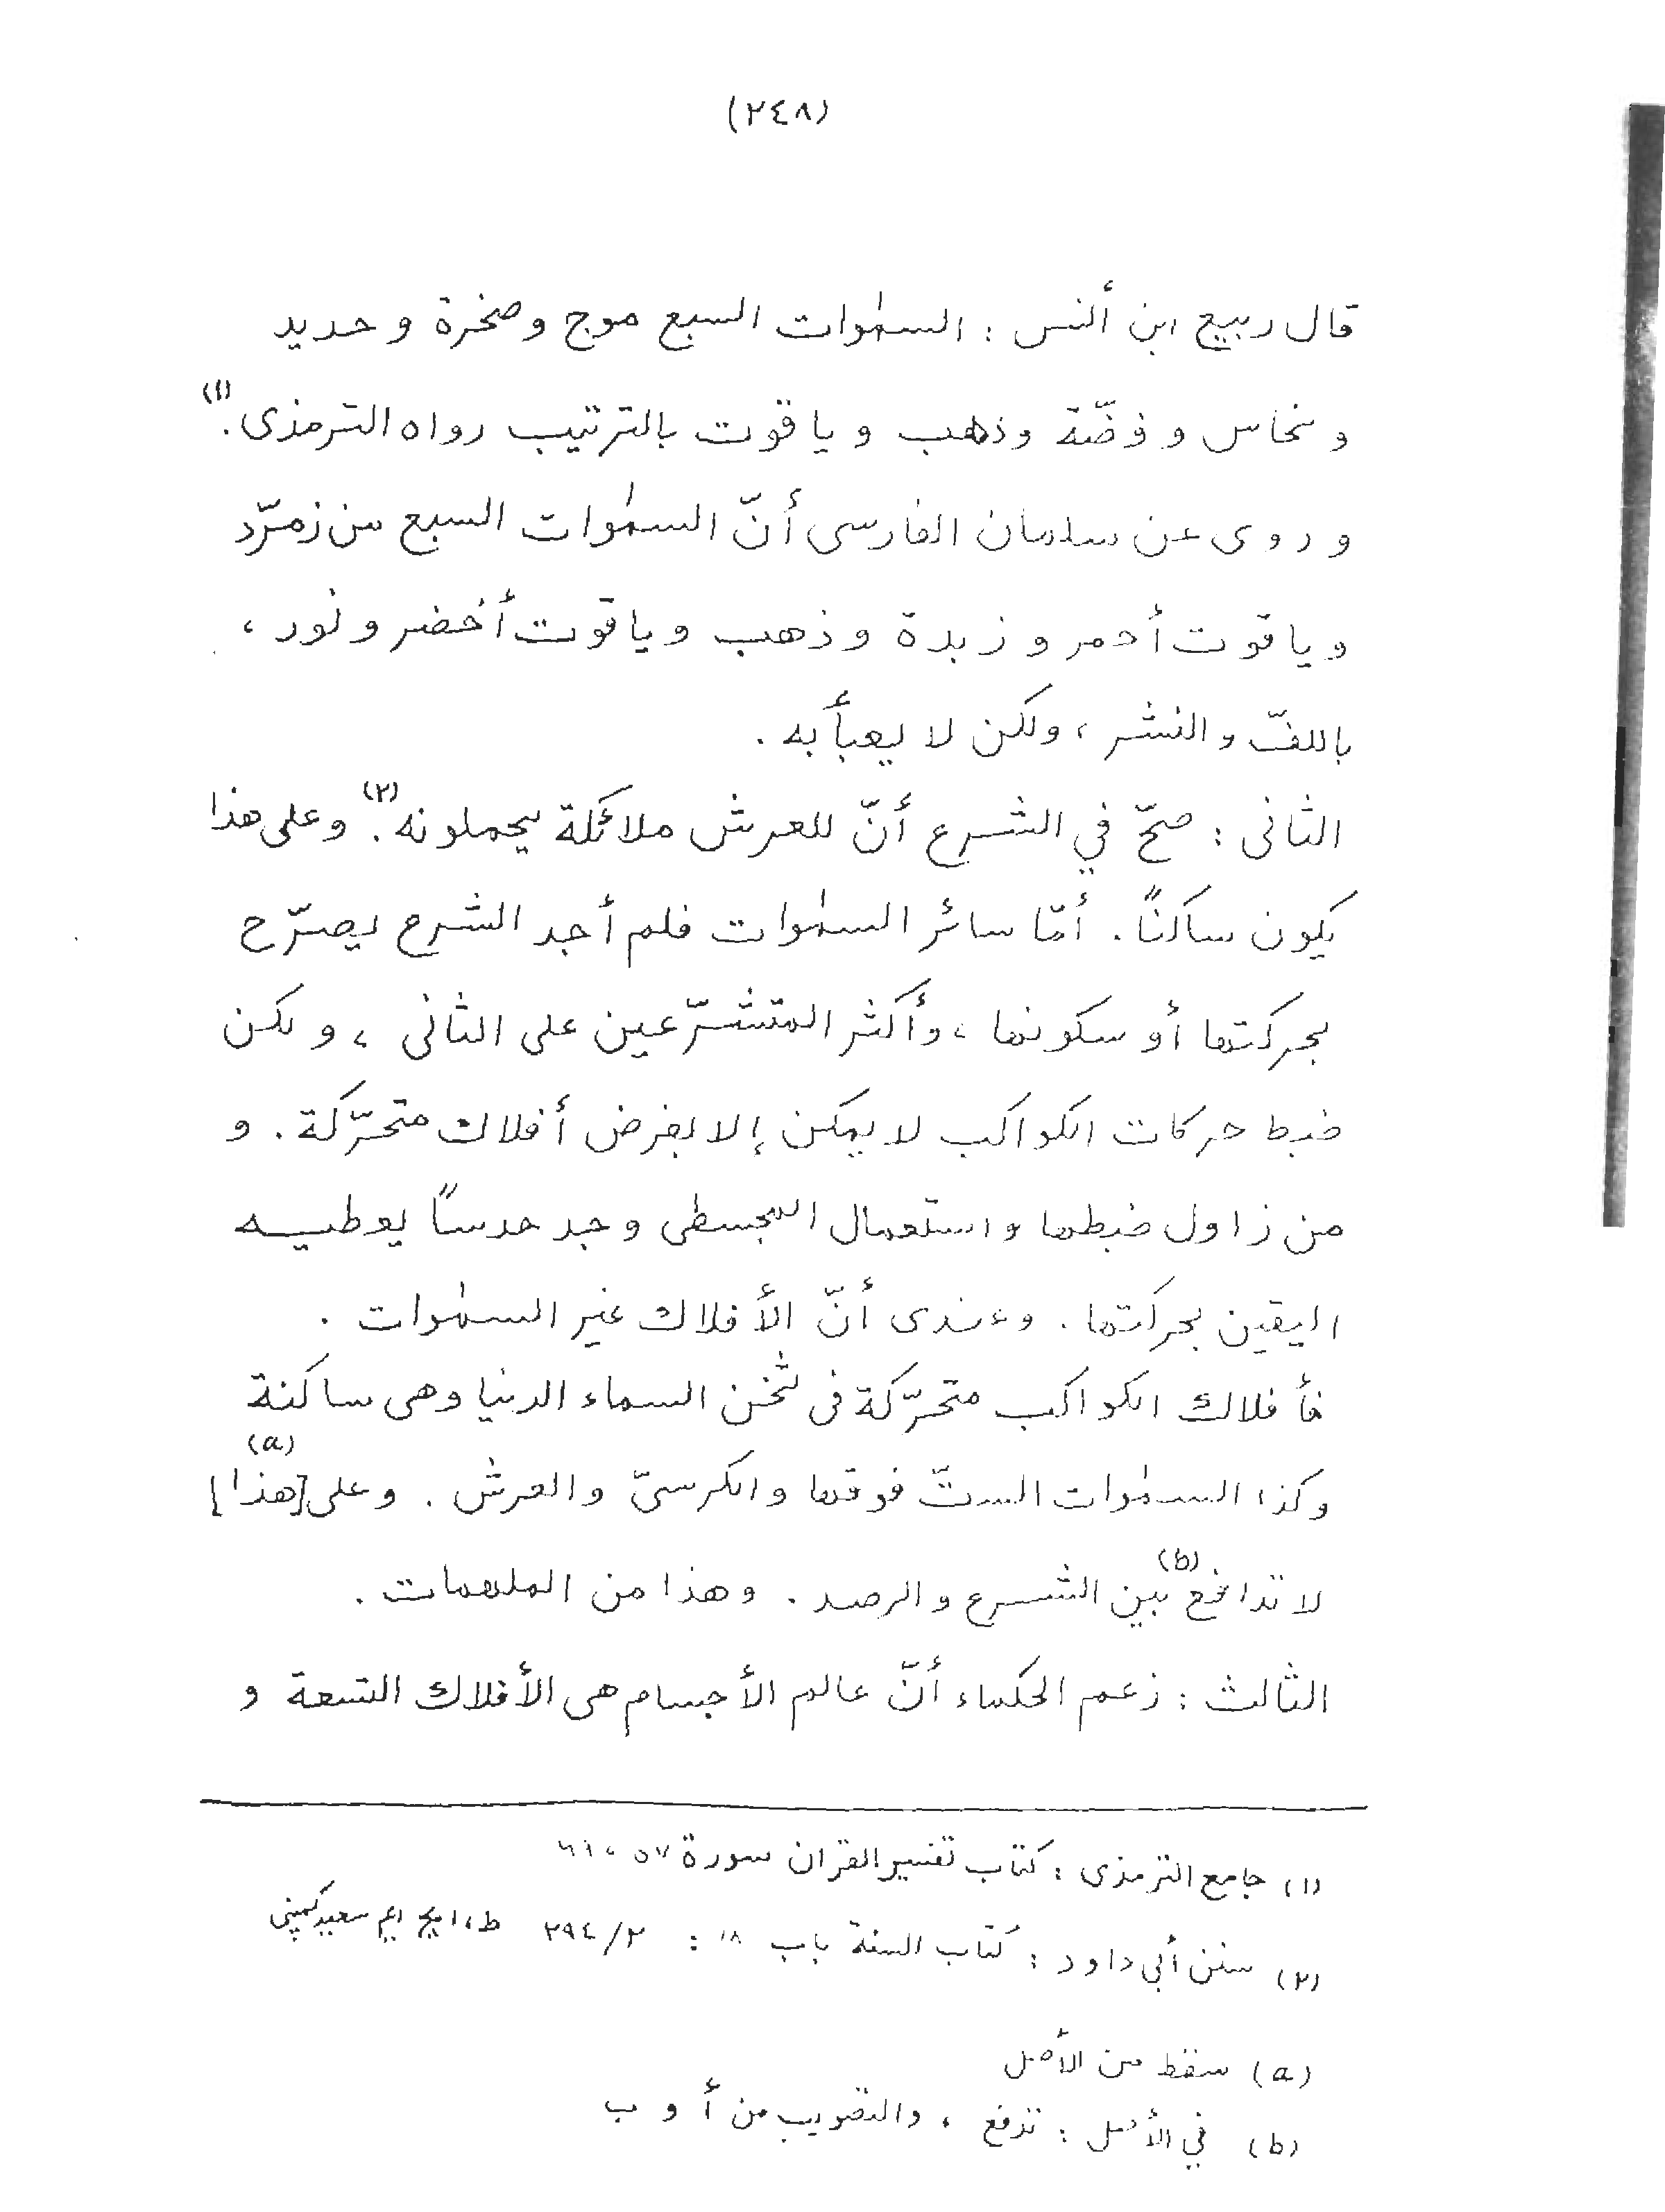 (٢٤٨)
قال ربيع ابن ألنس : السمٰوات السبع موج وصخرة و حديد
و نحاس و فضّة وذهب و ياقوت بالترتيب رواه الترمذى.(١)
و روى عن سلمان الفارسى أنّ السمٰوات السبع من زمرّد
و ياقوت أحمر و زبدة وذهب و ياقوت أخضر و نور ،
باللفّ و النشر ، ولكن لا يعبأ به .
الثانى : صحّ في الشرع أنّ للعرش ملائكة يحملونه(٢). و على هذا
يكون ساكناً . أمّا سائر السمٰوات فلم أجد الشرع يصرّح
بحركتها أو سكونها ، وأكثر المتشرّعين على الثانى ، و لكن
ضبط حركات الكواكب لا يمكن إلا بفرض أفلاك متحرّكة . و
من زاول ضبطها و استعمال المجسطى وجد حدساً يعطيه
اليقين بحركتها . وعندى أنّ الأفلاك غير السمٰوات .
فأفلاك الكواكب متحرّكة فى ثخن السماء الدنيا وهى ساكنة
وكذا السمٰوات الستّ فوقها والكرسىّ والعرش . وعلى [هذا](a)
لا تدافع(b) بين الشرع والرصد . وهذا من الملهمات .
الثالث : زعم الحكماء أنّ عالم الأجسام هى الأفلاك التسعة و
(١) جامع الترمذى : كتاب تفسير القران سورة ٥٧ ، ٦١
(٢) سنن أبي داود : كتاب السنة باب ١٨ : ٢/٢٩٤ ط، ايچ ايم سعيد كمپنى
(a) سقط من الأصل
(b) في الأصل : تدفع ، والتصويب من أ و ب